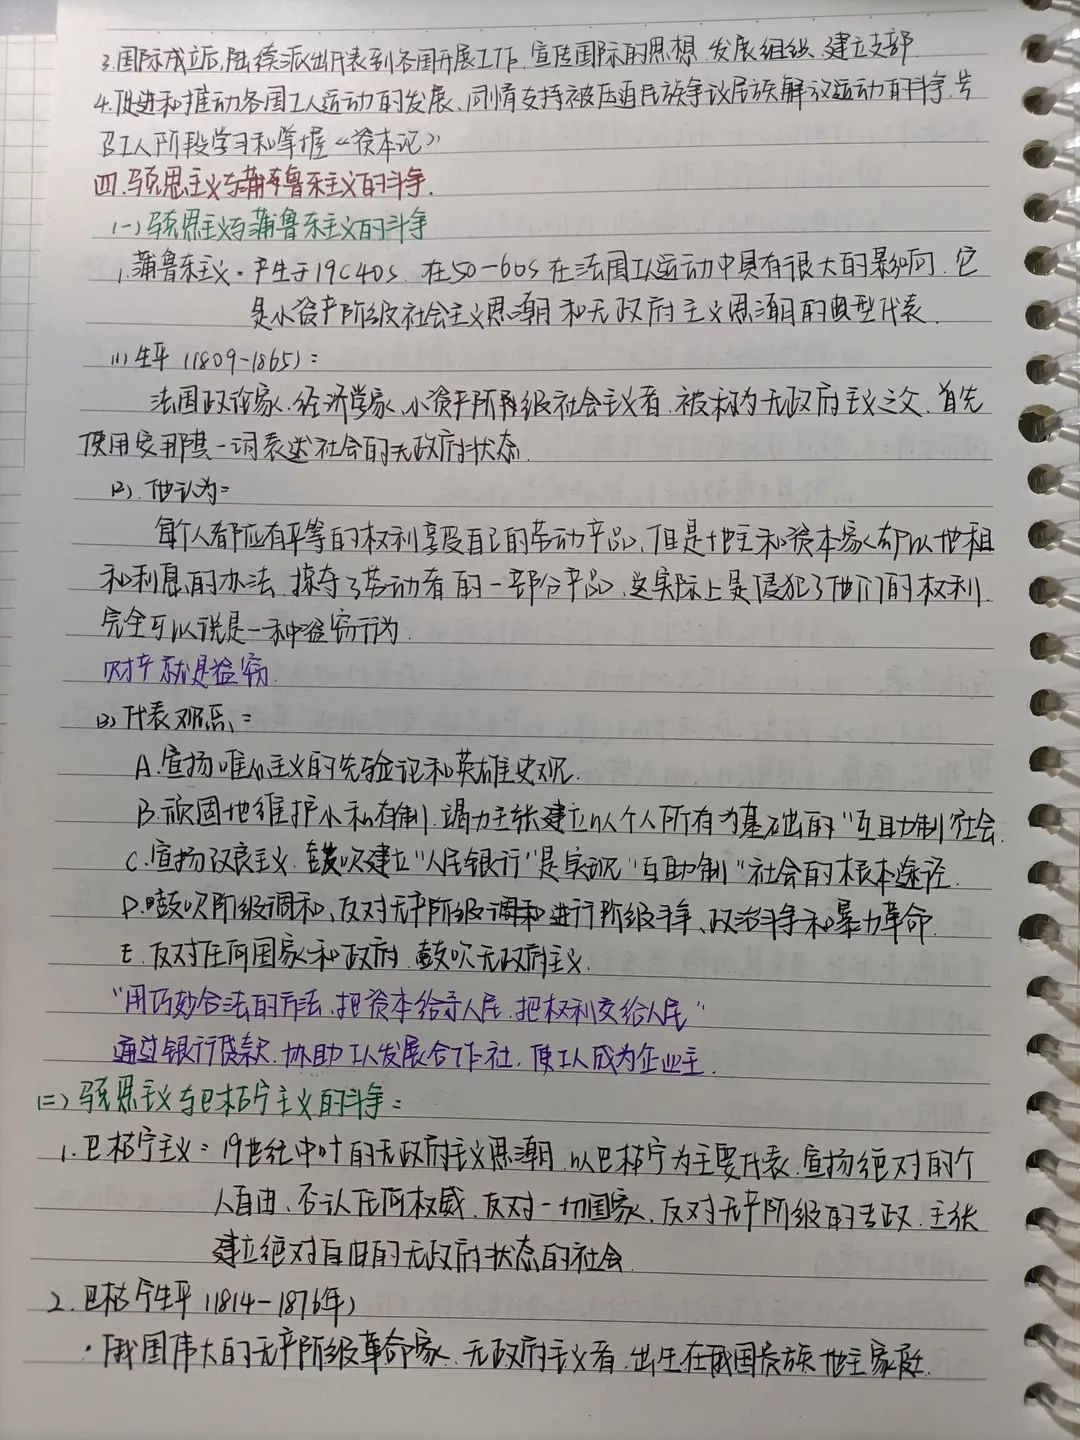 3.国际成立后,陆续派出代表到各国开展工作,宣传国际的思想,发展组织,建立支部
4.促进和推动各国工人运动的发展、同情支持被压迫民族争议民族解放运动的斗争,号
召工人阶段学习和掌握《资本论》
四.马克思主义与蒲鲁东主义的斗争.
(一)马克思主义与蒲鲁东主义的斗争
1.蒲鲁东主义·产生于19C40s.在50-60s在法国工人运动中具有很大的影响.它
是小资产阶级社会主义思潮和无政府主义思潮的典型代表.
(1)生平(1809-1865):
法国政论家.经济学家.小资产阶级社会主义者.被称为无政府主义之父.首先
使用安那其一词表达社会的无政府状态.
(2).他认为:
每个人都应有平等的权利享受自己的劳动产品,但是地主和资本家却以地租
和利息的办法,掠夺了劳动者的一部分产品,这实际上是侵犯了他们的权利.
完全可以说是一种盗窃行为.
财产就是盗窃.
(3)代表观点:
A.宣扬唯心主义的先验论和英雄史观.
B.顽固地维护小私有制.竭力主张建立以个人所有为基础的"互助制"社会.
C.宣扬改良主义.鼓吹建立"人民银行"是实现"互助制"社会的根本途径.
D.鼓吹阶级调和、反对无产阶级调和进行阶级斗争、政治斗争和暴力革命.
E.反对任何国家和政府.鼓吹无政府主义.
"用巧妙合法的方法,把资本给予人民.把权利交给人民"
通过银行贷款.协助工人发展合作社.使工人成为企业主.
(二)马克思主义与巴枯宁主义的斗争:
1.巴枯宁主义:19世纪中叶的无政府主义思潮.以巴枯宁为主要代表.宣扬绝对的个
人自由、否认任何权威.反对一切国家、反对无产阶级的专政.主张
建立绝对自由的无政府状态的社会.
2.巴枯宁生平(1814-1876年)
·俄国伟大的无产阶级革命家.无政府主义者.出生在俄国贵族地主家庭.